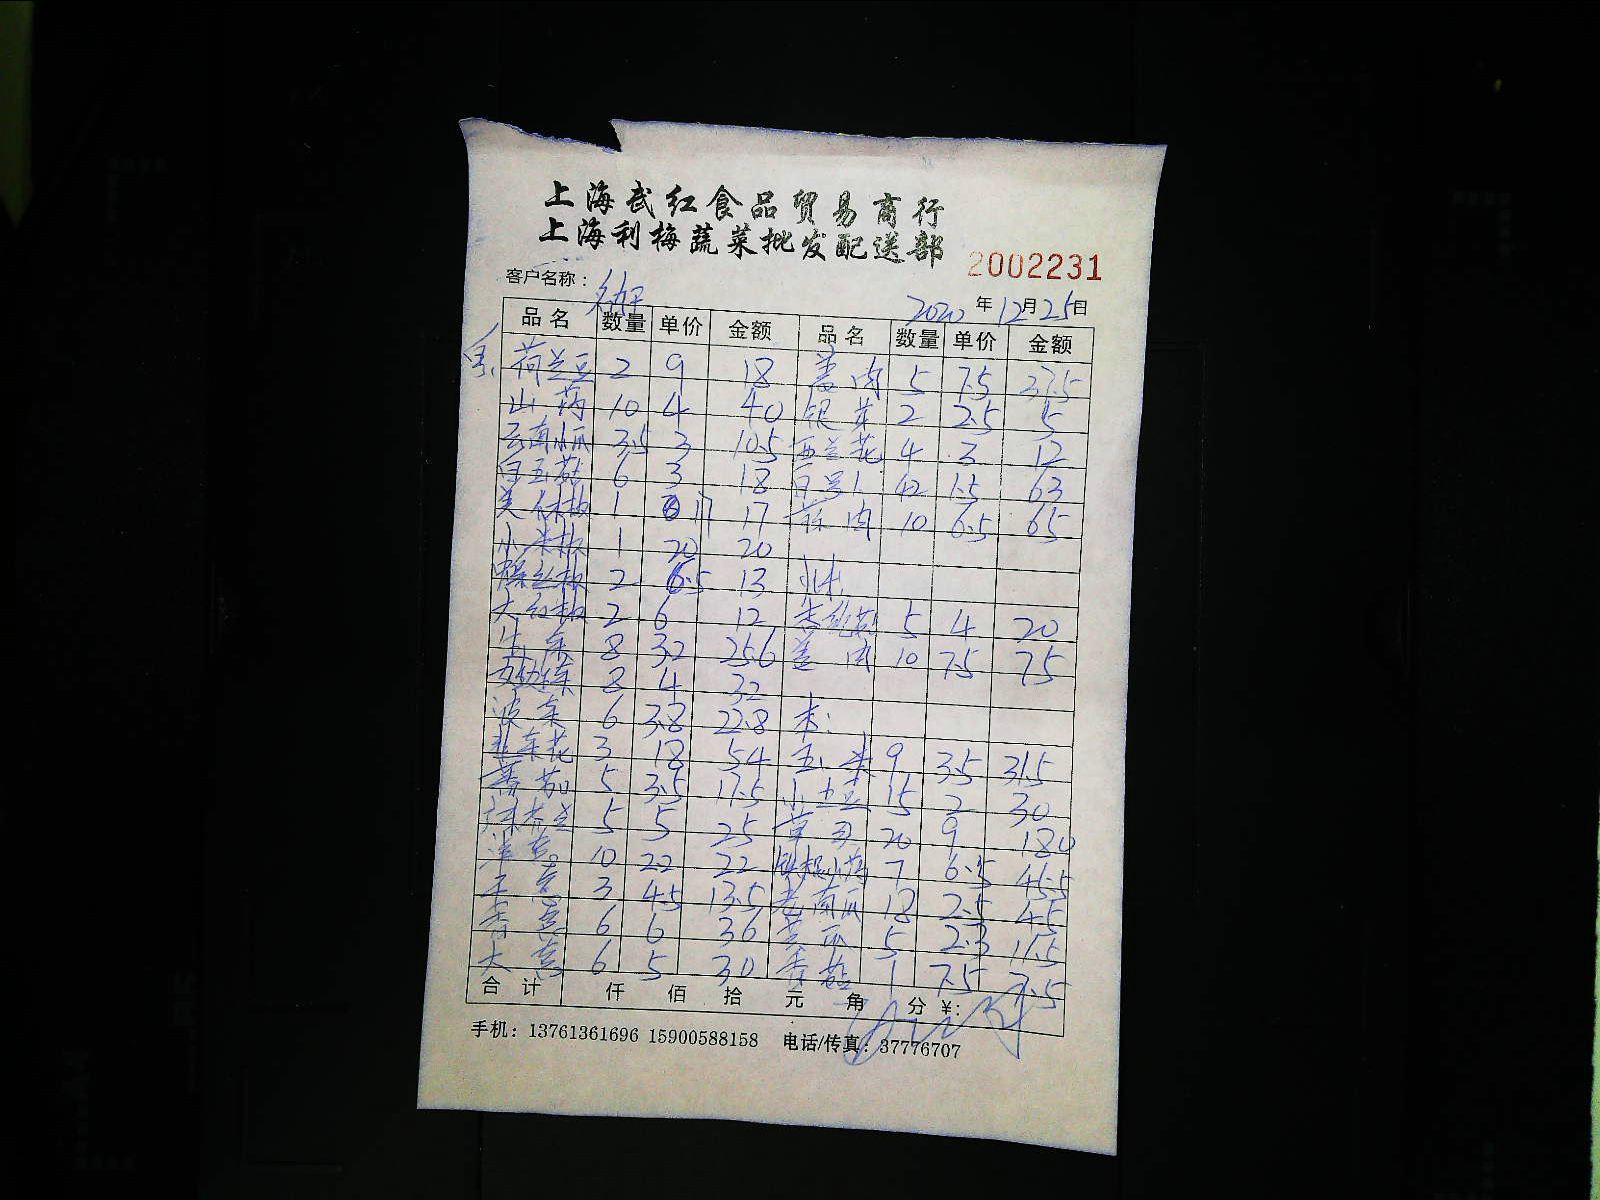 上海武红食品贸易商行
上海利梅蔬菜批发配送部
2002231
客户名称：
2020年12月25日
品名 数量 单价 金额 品名 数量 单价 金额
荷兰豆 2 9 18 姜肉 5 7.5 37.5
山药 10 4 40 银芽 2 2.5 5
云南小瓜 3.5 3 10.5 西兰花 4 3 12
白玉菇 6 3 18 42 1.5 63
美人椒 1 17 17 蒜肉 10 6.5 65
小米椒 1 20 20
螺丝椒 2 6.5 13
大红椒 2 6 12 5 4 20
生菜 8 3.2 25.6 姜肉 10 7.5 75
8 4 32
波菜 6 3.8 22.8
韭菜花 3 18 54 玉米 9 3.5 31.5
蕃茄 5 3.5 17.5 小土豆 15 2 30
5 5 25 草豆 20 9 180
洋葱 10 2.2 22 铁棍山药 7 6.5 45.5
3 4.5 13.5 老南瓜 18 2.5 45
香葱 6 6 36 黄瓜 5 2.3 11.5
大葱 6 5 30 香菇 1 7.5 7.5
合计 仟 佰 拾 元 角 分 ¥:
手机：13761361696 15900588158 电话/传真：37776707